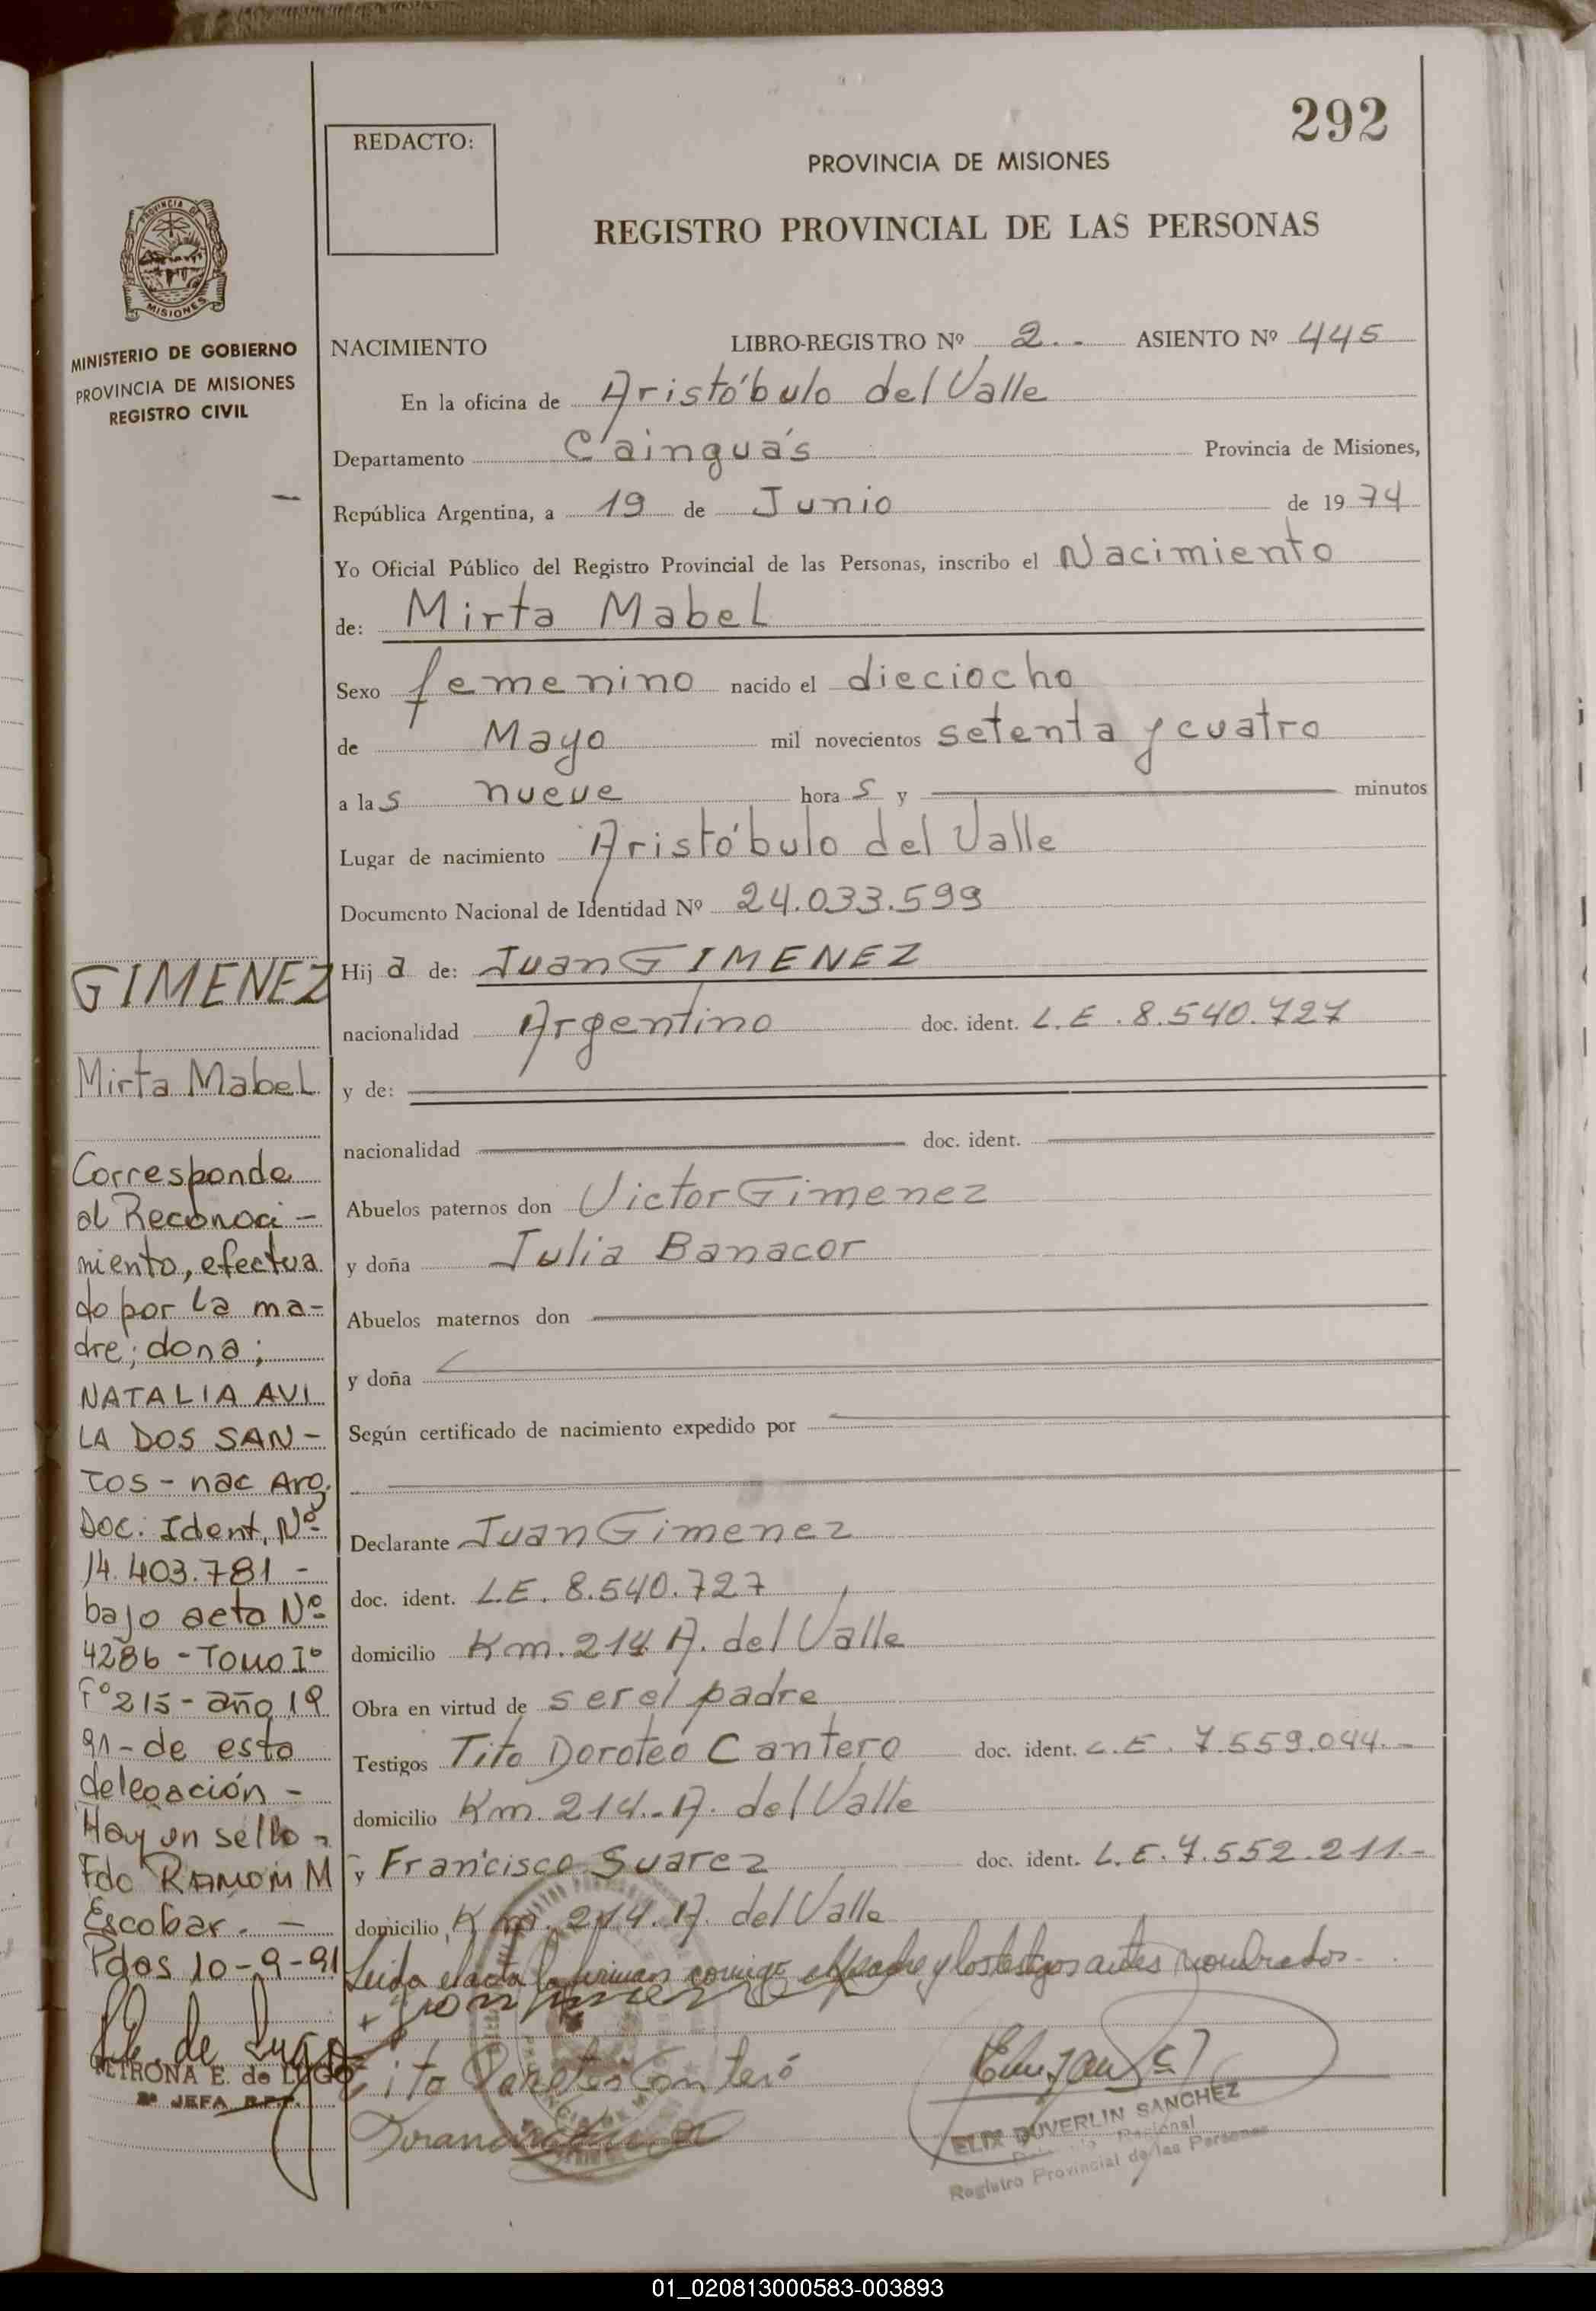 292
REDACTO:
PROVINCIA DE MISIONES
REGISTRO PROVINCIAL DE LAS PERSONAS
PROVINCIA DE
MISIONES
MINISTERIO DE GOBIERNO
PROVINCIA DE MISIONES
REGISTRO CIVIL
NACIMIENTO LIBRO-REGISTRO Nº 2.- ASIENTO Nº 445
En la oficina de Aristóbulo del Valle
Departamento Cainguás Provincia de Misiones,
República Argentina, a 19 de Junio de 1974
Yo Oficial Público del Registro Provincial de las Personas, inscribo el Nacimiento
de: Mirta Mabel
Sexo femenino nacido el dieciocho
de Mayo mil novecientos setenta y cuatro
a las nueve horas y minutos
Lugar de nacimiento Aristóbulo del Valle
Documento Nacional de Identidad Nº 24.033.599
Hija de: Juan GIMENEZ
nacionalidad Argentino doc. ident. L.E. 8.540.727
y de:
nacionalidad doc. ident.
Abuelos paternos don Victor Gimenez
y doña Julia Banacor
Abuelos maternos don
y doña
Según certificado de nacimiento expedido por
Declarante Juan Gimenez
doc. ident. L.E. 8.540.727
domicilio Km. 214 A. del Valle
Obra en virtud de ser el padre
Testigos Tito Doroteo Cantero doc. ident. L.E. 7.559.044.-
domicilio Km. 214.- A. del Valle
y Francisco Suarez doc. ident. L.E. 7.552.211.-
domicilio Km. 214. A. del Valle
Leida el acta la firman conmigo el padre y los testigos antes nombrados.
Tito Doroteo Canteró
ELIX DUVERLIN SANCHEZ
Registro Provincial de las Personas
GIMENEZ
Mirta Mabel
Corresponde
al Reconoci-
miento, efectua
do por la ma-
dre; dona;
NATALIA AVI
LA DOS SAN-
TOS - nac Arg.
Doc. Ident. Nº
14.403.781 -
bajo acta Nº
4286 - Tomo Iº
Fº 215 - año 19
91 - de esta
delegación -
Hay un sello -
Fdo RAMON M
Escobar. -
Pdas 10-9-91
PETRONA E. de LUGO
2ª JEFA R.P.P.
01_020813000583-003893